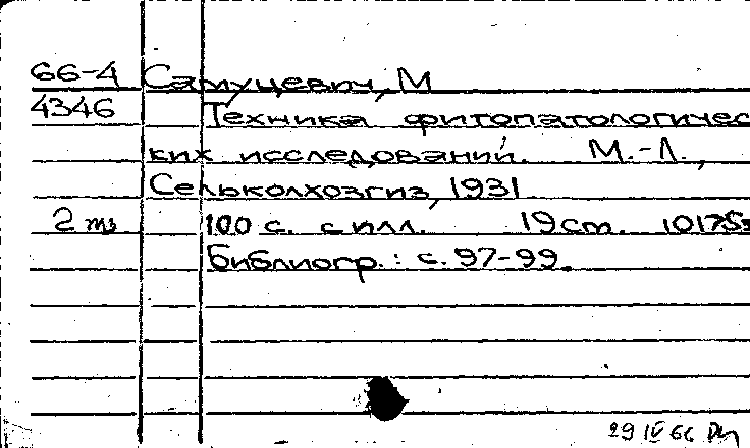 66-4 Самуцевич, М
4346 Техника фитопатологичес
ких исследований. М.-Л.,
Сельколхозгиз, 1931
100 с. с илл. 19 ст.
Библиогр.: с. 97-99.
29 IV 66